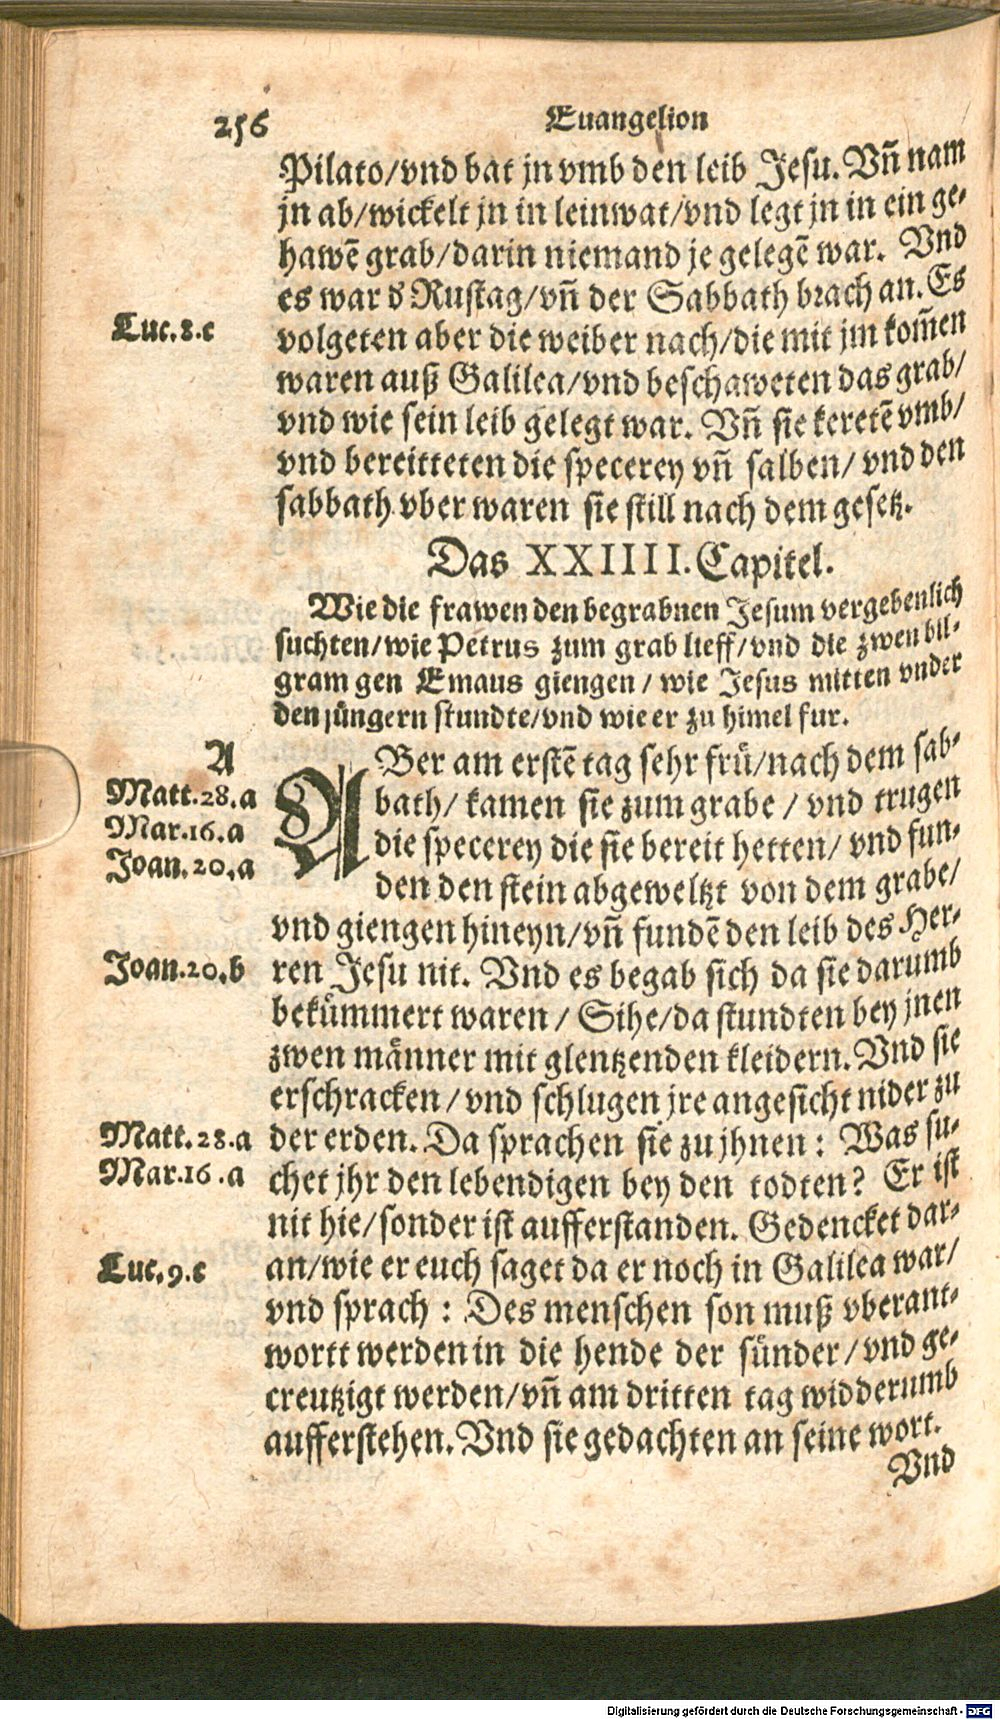 256
Euangelion
Pilato/vnd bat jn vmb den leib Jesu. Vñ nam
jn ab/wickelt jn in leinwat/vnd legt jn in ein ge-
hawẽ grab/darin niemand je gelegẽ war. Vnd
es war d Rustag/vñ der Sabbath brach an. Es
Luc.8.c
volgeten aber die weiber nach/die mit jm kom̃en
waren auß Galilea/vnd beschaweten das grab/
vnd wie sein leib gelegt war. Vñ sie keretẽ vmb/
vnd bereitteten die specerey vñ salben/vnd den
sabbath vber waren sie still nach dem gesetz.
Das XXIIII. Capitel.
Wie die frawen den begrabnen Jesum vergebenlich
suchten/wie Petrus zum grab lieff/vnd die zwen bil-
gram gen Emaus giengen/wie Jesus mitten vnder
den jüngern stundte/vnd wie er zu himel fur.
A
Matt.28.a
Mar.16.a
Joan.20.a
ABer am erstẽ tag sehr frü/nach dem sab-
bath/kamen sie zum grabe/vnd trugen
die specerey die sie bereit hetten/vnd fun-
den den stein abgeweltzt von dem grabe/
vnd giengen hineyn/vñ fundẽ den leib des Her-
Joan.20.b
ren Jesu nit. Vnd es begab sich da sie darumb
bekümmert waren/Sihe/da stundten bey jnen
zwen männer mit glentzenden kleidern. Vnd sie
erschracken/vnd schlugen jre angesicht nider zu
Matt.28.a
Mar.16.a
der erden. Da sprachen sie zu jhnen: Was su-
chet jhr den lebendigen bey den todten? Er ist
nit hie/sonder ist aufferstanden. Gedencket dar-
Luc.9.c
an/wie er euch saget da er noch in Galilea war/
vnd sprach: Des menschen son muß vberant-
wortt werden in die hende der sünder/vnd ge-
creutzigt werden/vñ am dritten tag widderumb
aufferstehen. Vnd sie gedachten an seine wort.
Vnd
Digitalisierung gefördert durch die Deutsche Forschungsgemeinschaft - DFG